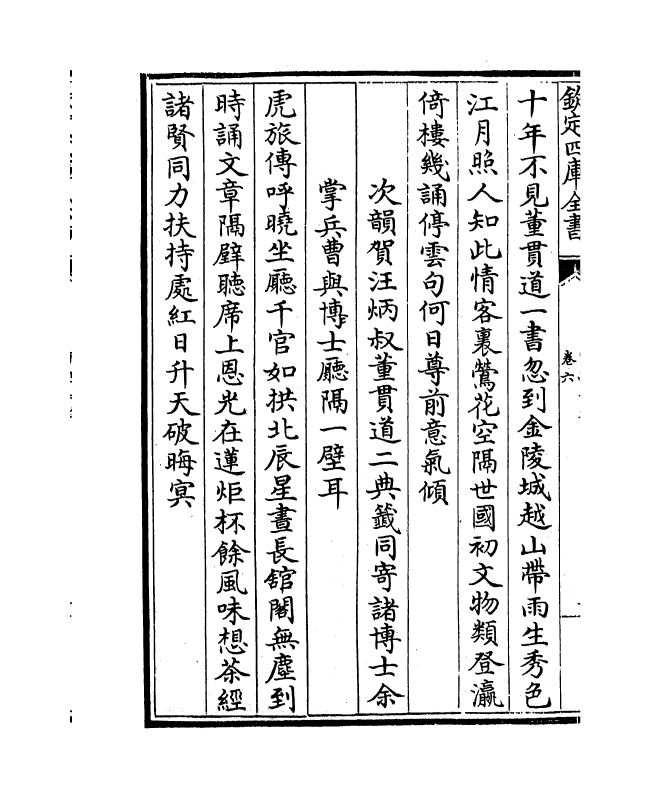 欽定四庫全書
卷六
十年不見董貫道一書忽到金陵城越山帶雨生秀色
江月照人知此情客裏鶯花空隔世國初文物類登瀛
倚樓幾誦停雲句何日尊前意氣傾
次韻賀汪炳叔董貫道二典籤同寄諸博士余
掌兵曹與博士廳隔一壁耳
虎旅傳呼曉坐廳千官如拱北辰星晝長舘閣無塵到
時誦文章隔壁聽席上恩光在蓮炬杯餘風味想茶經
諸賢同力扶持處紅日升天破晦冥